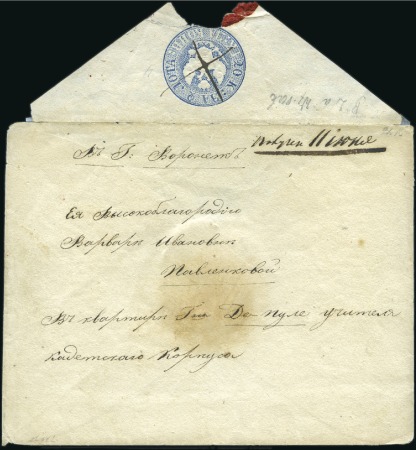 Въ Г: Воронежъ
11 Іюня
Ея Высокоблагородію
Варварѣ Ивановнѣ
Павленковой
Въ квартирѣ Гна Де-Пуле учителя
кадетскаго Корпуса